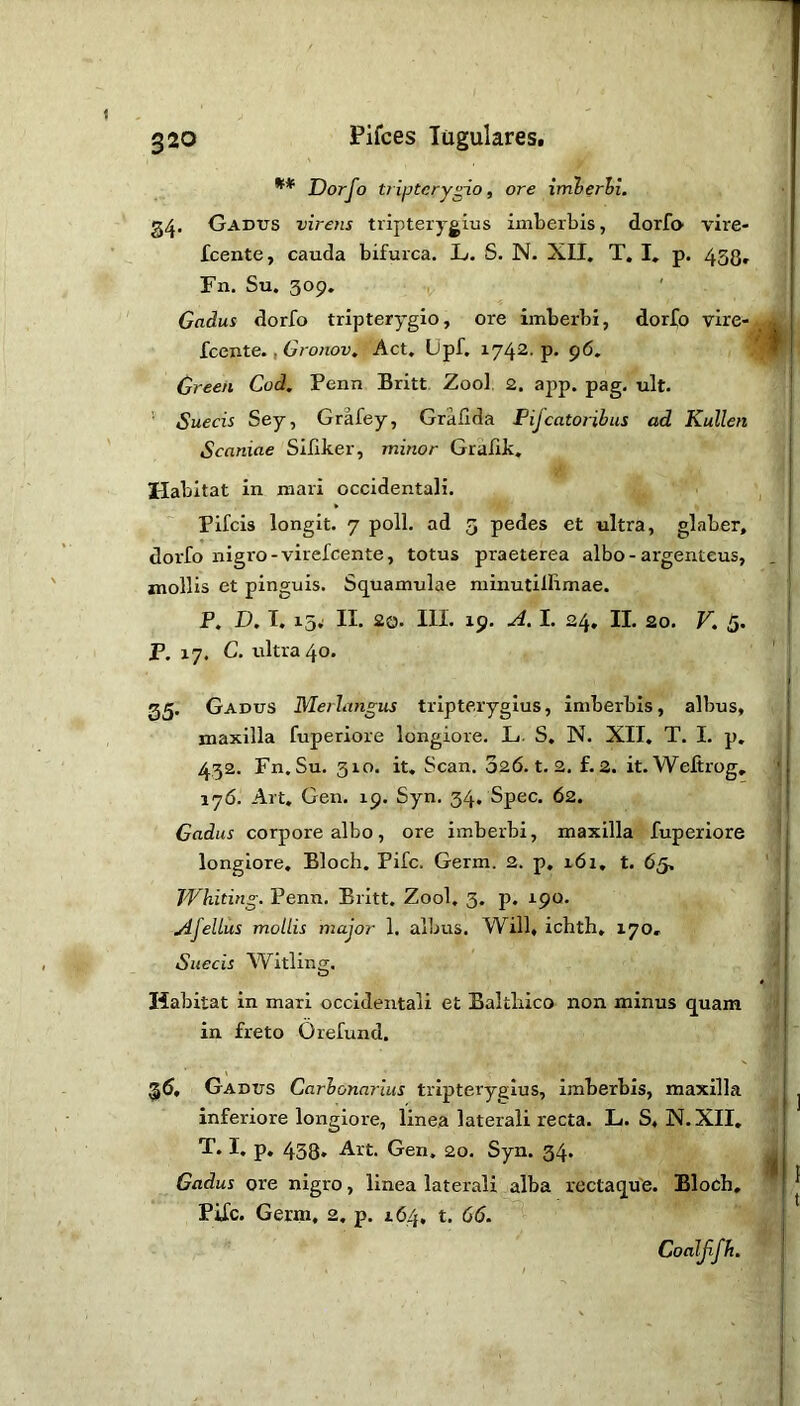 320 Piſces Iugulares.
** Dorſo tripterygio, ore imberbi.
34. GADUS virens tripterygius imberbis, dorſo vire-
ſcente, cauda bifurca. L. S. N. XII. T. I. p. 438.
Fn. Su. 309.
Gadus dorſo tripterygio, ore imberbi, dorſo vire-
ſcente. Gronov. Act. Upſ. 1742. p. 96.
Green Cod. Penn Britt Zool 2. app. pag. ult.
Suecis Sey, Gråſey, Gråſida Piſcatoribus ad Kullen
Scaniae Siſiker, minor Graſik.
Habitat in mari occidentali.
Piſcis longit. 7 poll. ad 3 pedes et ultra, glaber,
dorſo nigro-vireſcente, totus praeterea albo-argenteus,
mollis et pinguis. Squamulae minutiſſimae.
P. D. I. 13. II. 20. III. 19. A. I. 24. II. 20. V. 5.
P. 17. C. ultra 40.
35. GADUS Merlangus tripterygius, imberbis, albus,
maxilla ſuperiore longiore. L. S. N. XII. T. I. p.
432. Fn. Su. 310. it. Scan. 326. t. 2. f. 2. it. Weſtrog.
176. Art. Gen. 19. Syn. 34. Spec. 62.
Gadus corpore albo, ore imberbi, maxilla ſuperiore
longiore. Bloch. Piſc. Germ. 2. p. 161. t. 65.
Whiting. Penn. Britt. Zool. 3. p. 190.
Aſellus mollis major l. albus. Will. ichth. 170.
Suecis Witling.
Habitat in mari occidentali et Balthico non minus quam
in freto Öreſund.
36. GADUS Carbonarius tripterygius, imberbis, maxilla
inferiore longiore, linea laterali recta. L. S. N. XII.
T. I. p. 438. Art. Gen. 20. Syn. 34.
Gadus ore nigro, linea laterali alba rectaque. Bloch.
Piſc. Germ. 2. p. 164. t. 66.
Coalfiſh.